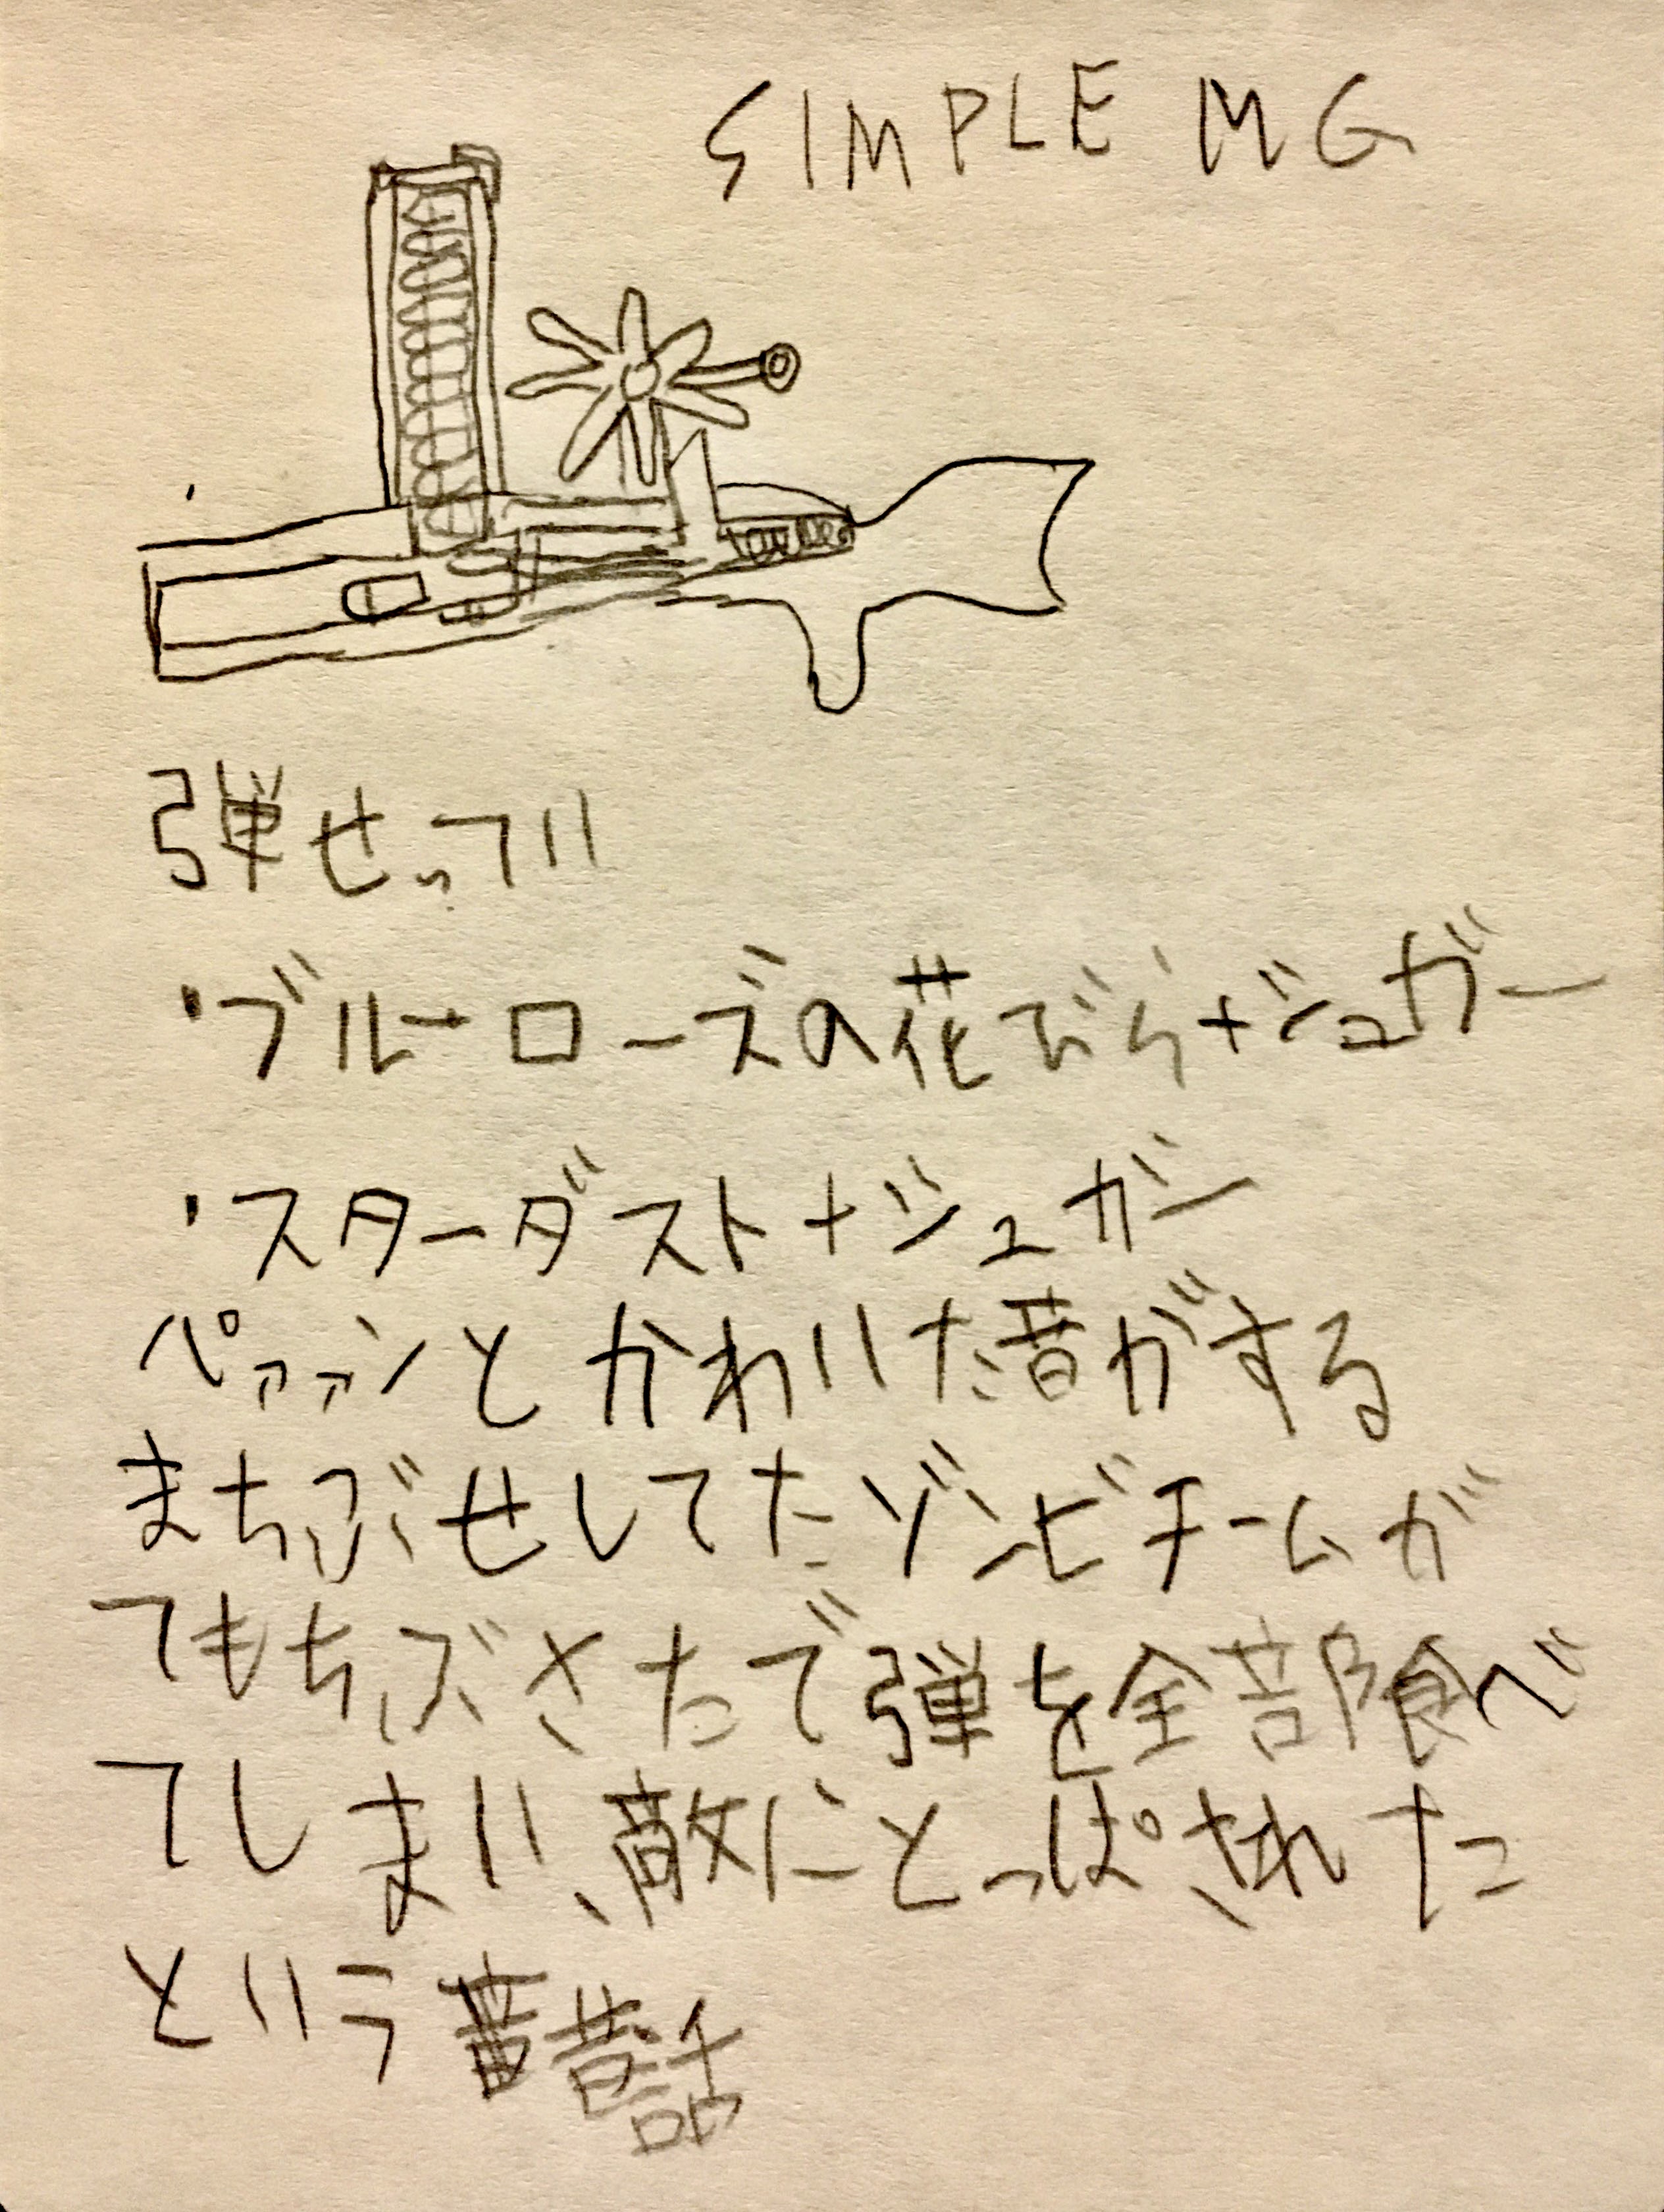 SIMPLE MG
弾せってい
・ブルーローズの花びら+ジュガー
・スターダスト+ジュガー
ペァァンとかわいた音がする
まちぶせしてたゾンビチームが
てもちぶさたで弾を全部食べ
てしまい、敵にとっぱされた
という昔話